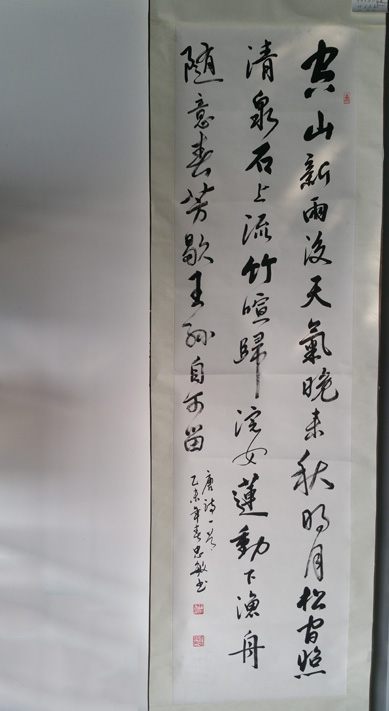 空山新雨後天氣晚来秋明月松间照
清泉石上流竹喧歸浣女蓮動下漁舟
随意春芳歇王孫自可留
唐詩一首
乙未年春忠敏书